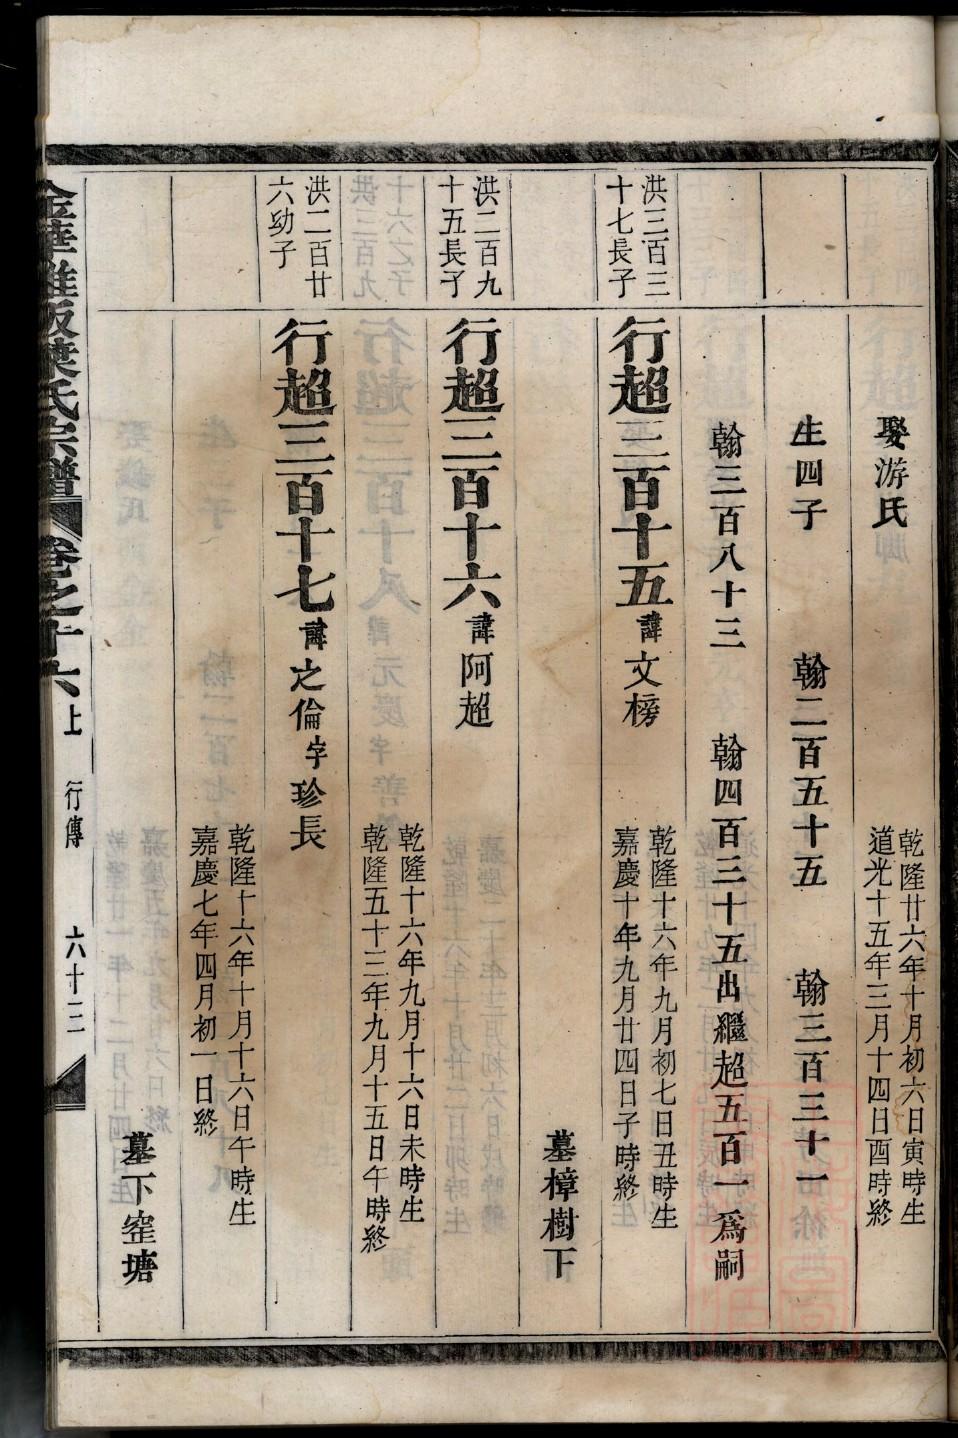 娶游氏
乾隆廿六年十月初六日寅時生
道光十五年三月十四日酉時終
生四子 翰二百五十五 翰三百三十一
翰三百八十三 翰四百三十五出繼超五百一爲嗣
洪三百三
十七長子
行超三百十五諱文榜
乾隆十六年九月初七日丑時生
嘉慶十年九月廿四日子時終
墓樟樹下
洪二百九
十五長子
行超三百十六諱阿超
乾隆十六年九月十六日未時生
乾隆五十三年九月十五日午時終
洪二百廿
六幼子
行超三百十七諱之倫字珍長
乾隆十六年十月十六日午時生
嘉慶七年四月初一日終
墓下窄塘
氏宗譜 卷之十六上 行傳 六十三